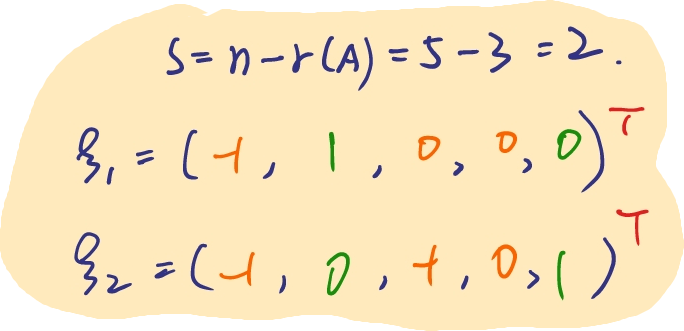 S = n - r(A) = 5 - 3 = 2.
ξ₁ = (-1, 1, 0, 0, 0)ᵀ
ξ₂ = (-1, 0, -1, 0, 1)ᵀ